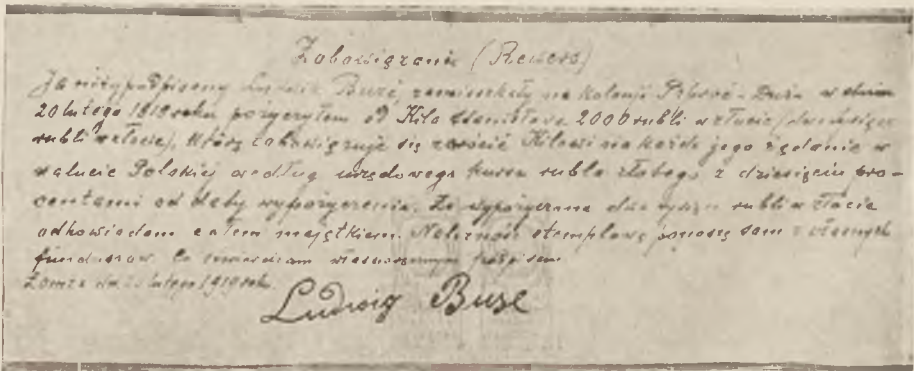 Zobowiązanie (Rewers)
Ja niżej podpisany Ludwik Buze, zamieszkały na Kolonji - Duża w dniu
20 lutego 1919 roku pożyczyłem od Kilo Stanisława 2000 rubli w złocie (dwa tysiące
rubli w złocie), którą zobowiązuje się zwrócić Kilowi na każde jego rządanie w
walucie Polskiej według urzędowego kursu rubla złotego z dziesięciu pro-
centami od daty wypożyczenia. Za wypożyczone dwa tysiące rubli w złocie
odpowiadam całem majątkiem. Należność stemplową ponoszę sam z własnych
funduszów. Co stwierdzam własnoręcznym podpisem
Łomża dn. 20 lutego 1919 rok.
Ludwig Buse